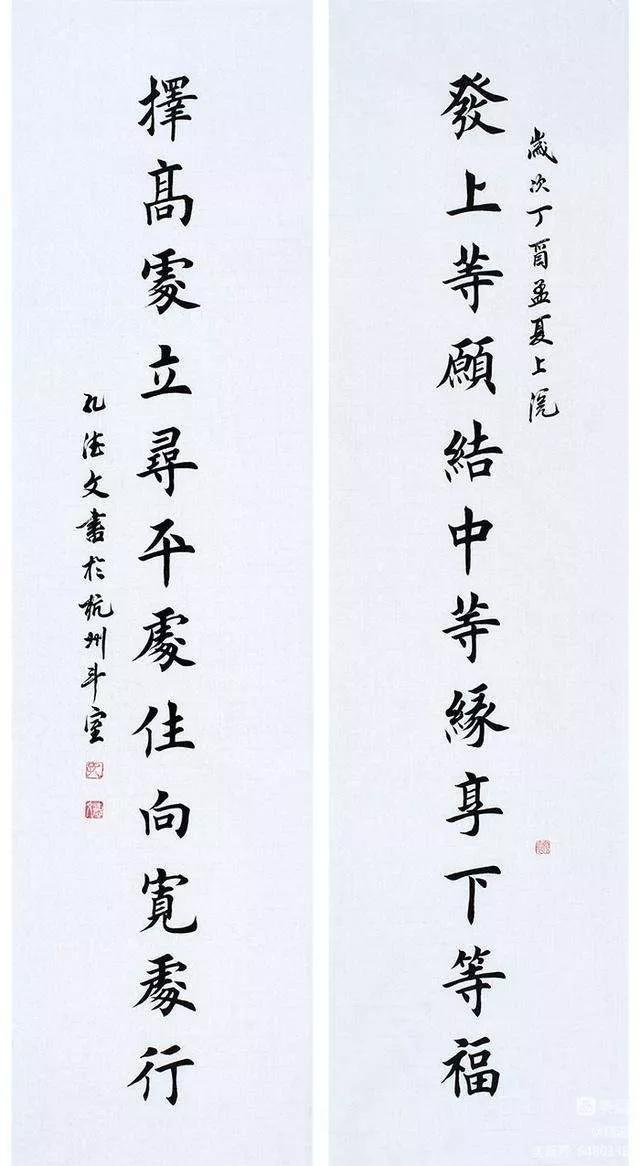 歲次丁酉孟夏上浣
發上等願結中等緣享下等福
擇髙處立尋平處住向寬處行
孔德文書於杭州斗室